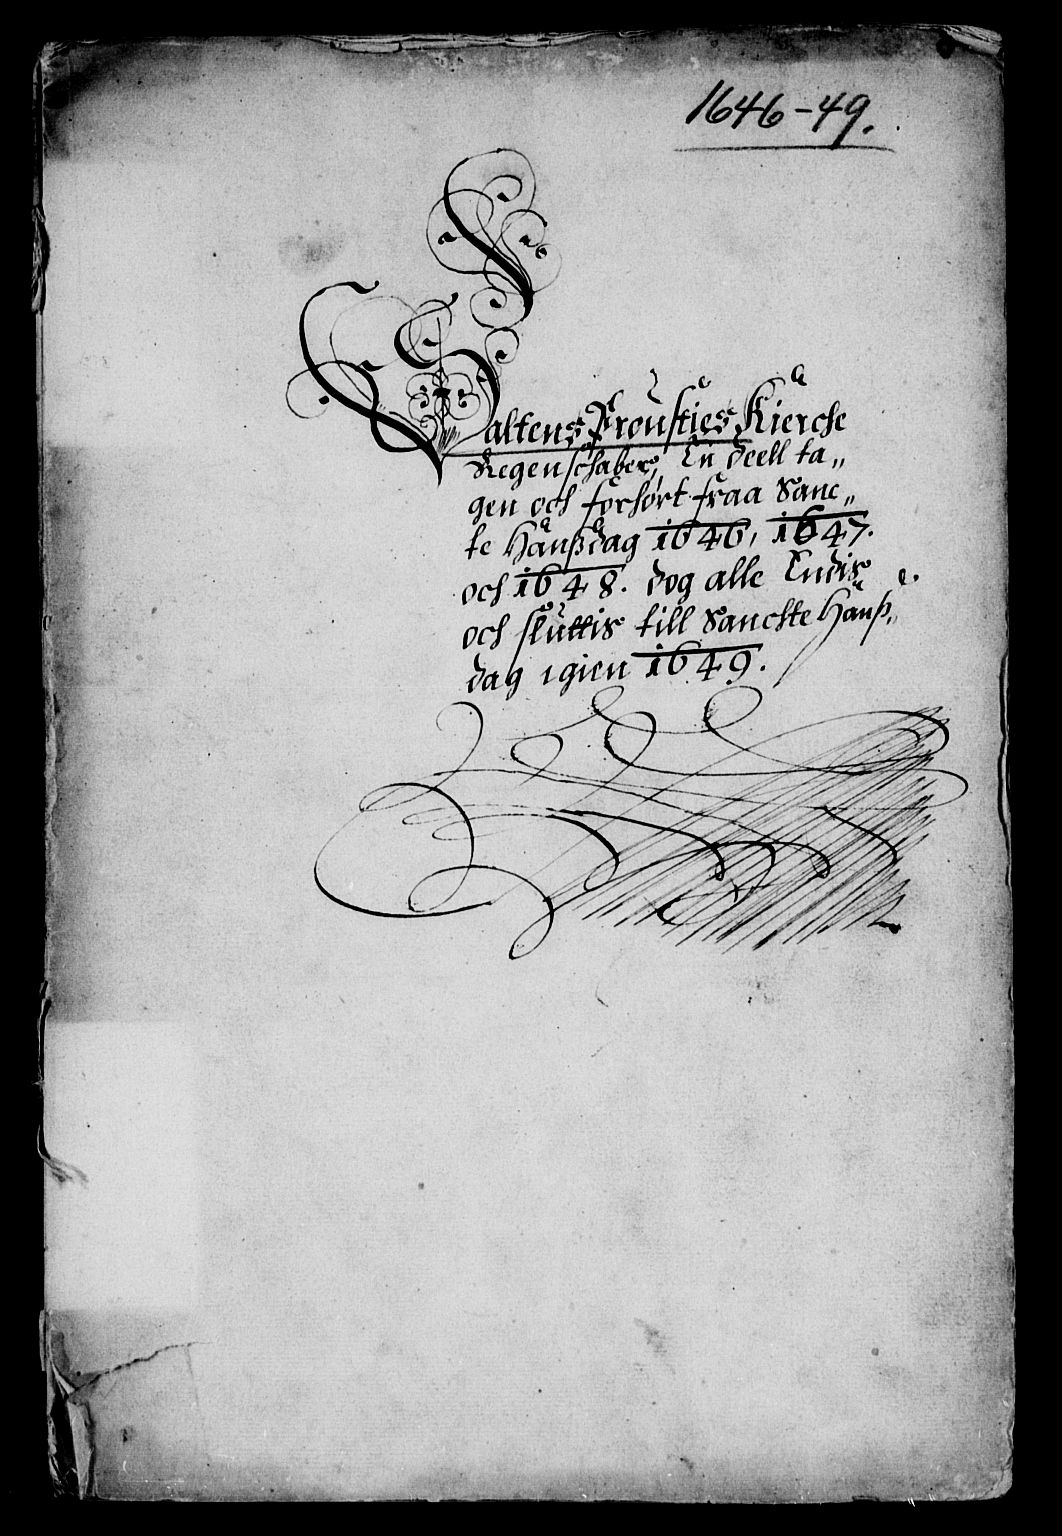 1646-49.
SaltensProusties Kierche
Regenschaber, En deell ta„
gen och forhört fraa Sanc„
te Hanßdag 1646, 1647.
och 1648. dog alle Endis
och sluttis till Sanckte Hanß„
dag igien 1649.